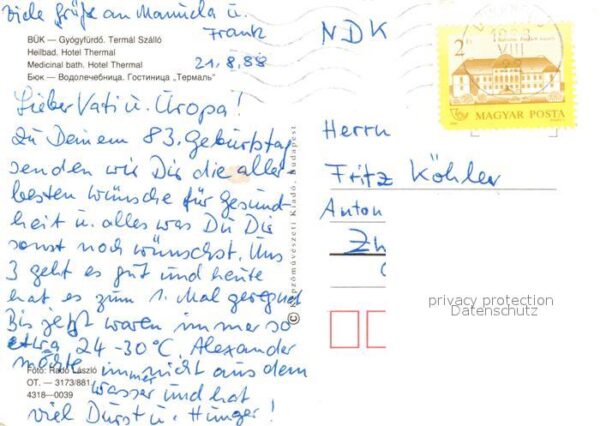 Viele Grüße an Manuela u.
Frank
BÜK — Gyógyfürdő. Termál Szálló
Heilbad. Hotel Thermal
Medicinal bath. Hotel Thermal
Бюк — Водолечебница. Гостиница „Термаль"
21.8.88
Lieber Vati u. Uropa!
Zu Deinem 83. Geburtstag
senden wir Dir die aller
besten Wünsche für Gesund-
heit u. alles was Du Dir
sonst noch wünschst. Uns
3 geht es gut und heute
hat es zum 1. Mal geregnet
Bis jetzt waren immer so
etwa 24-30°C. Alexander
möchte immer nicht aus dem
Wasser und hat
viel Durst u. Hunger!
Fotó: Radó László
OT. — 3173/881
4318—0039
© Képzőművészeti Kiadó, Budapest
NDK
2 Ft
1988
VIII
MAGYAR POSTA
Herrn
Fritz Köhler
Anton
privacy protection
Datenschutz